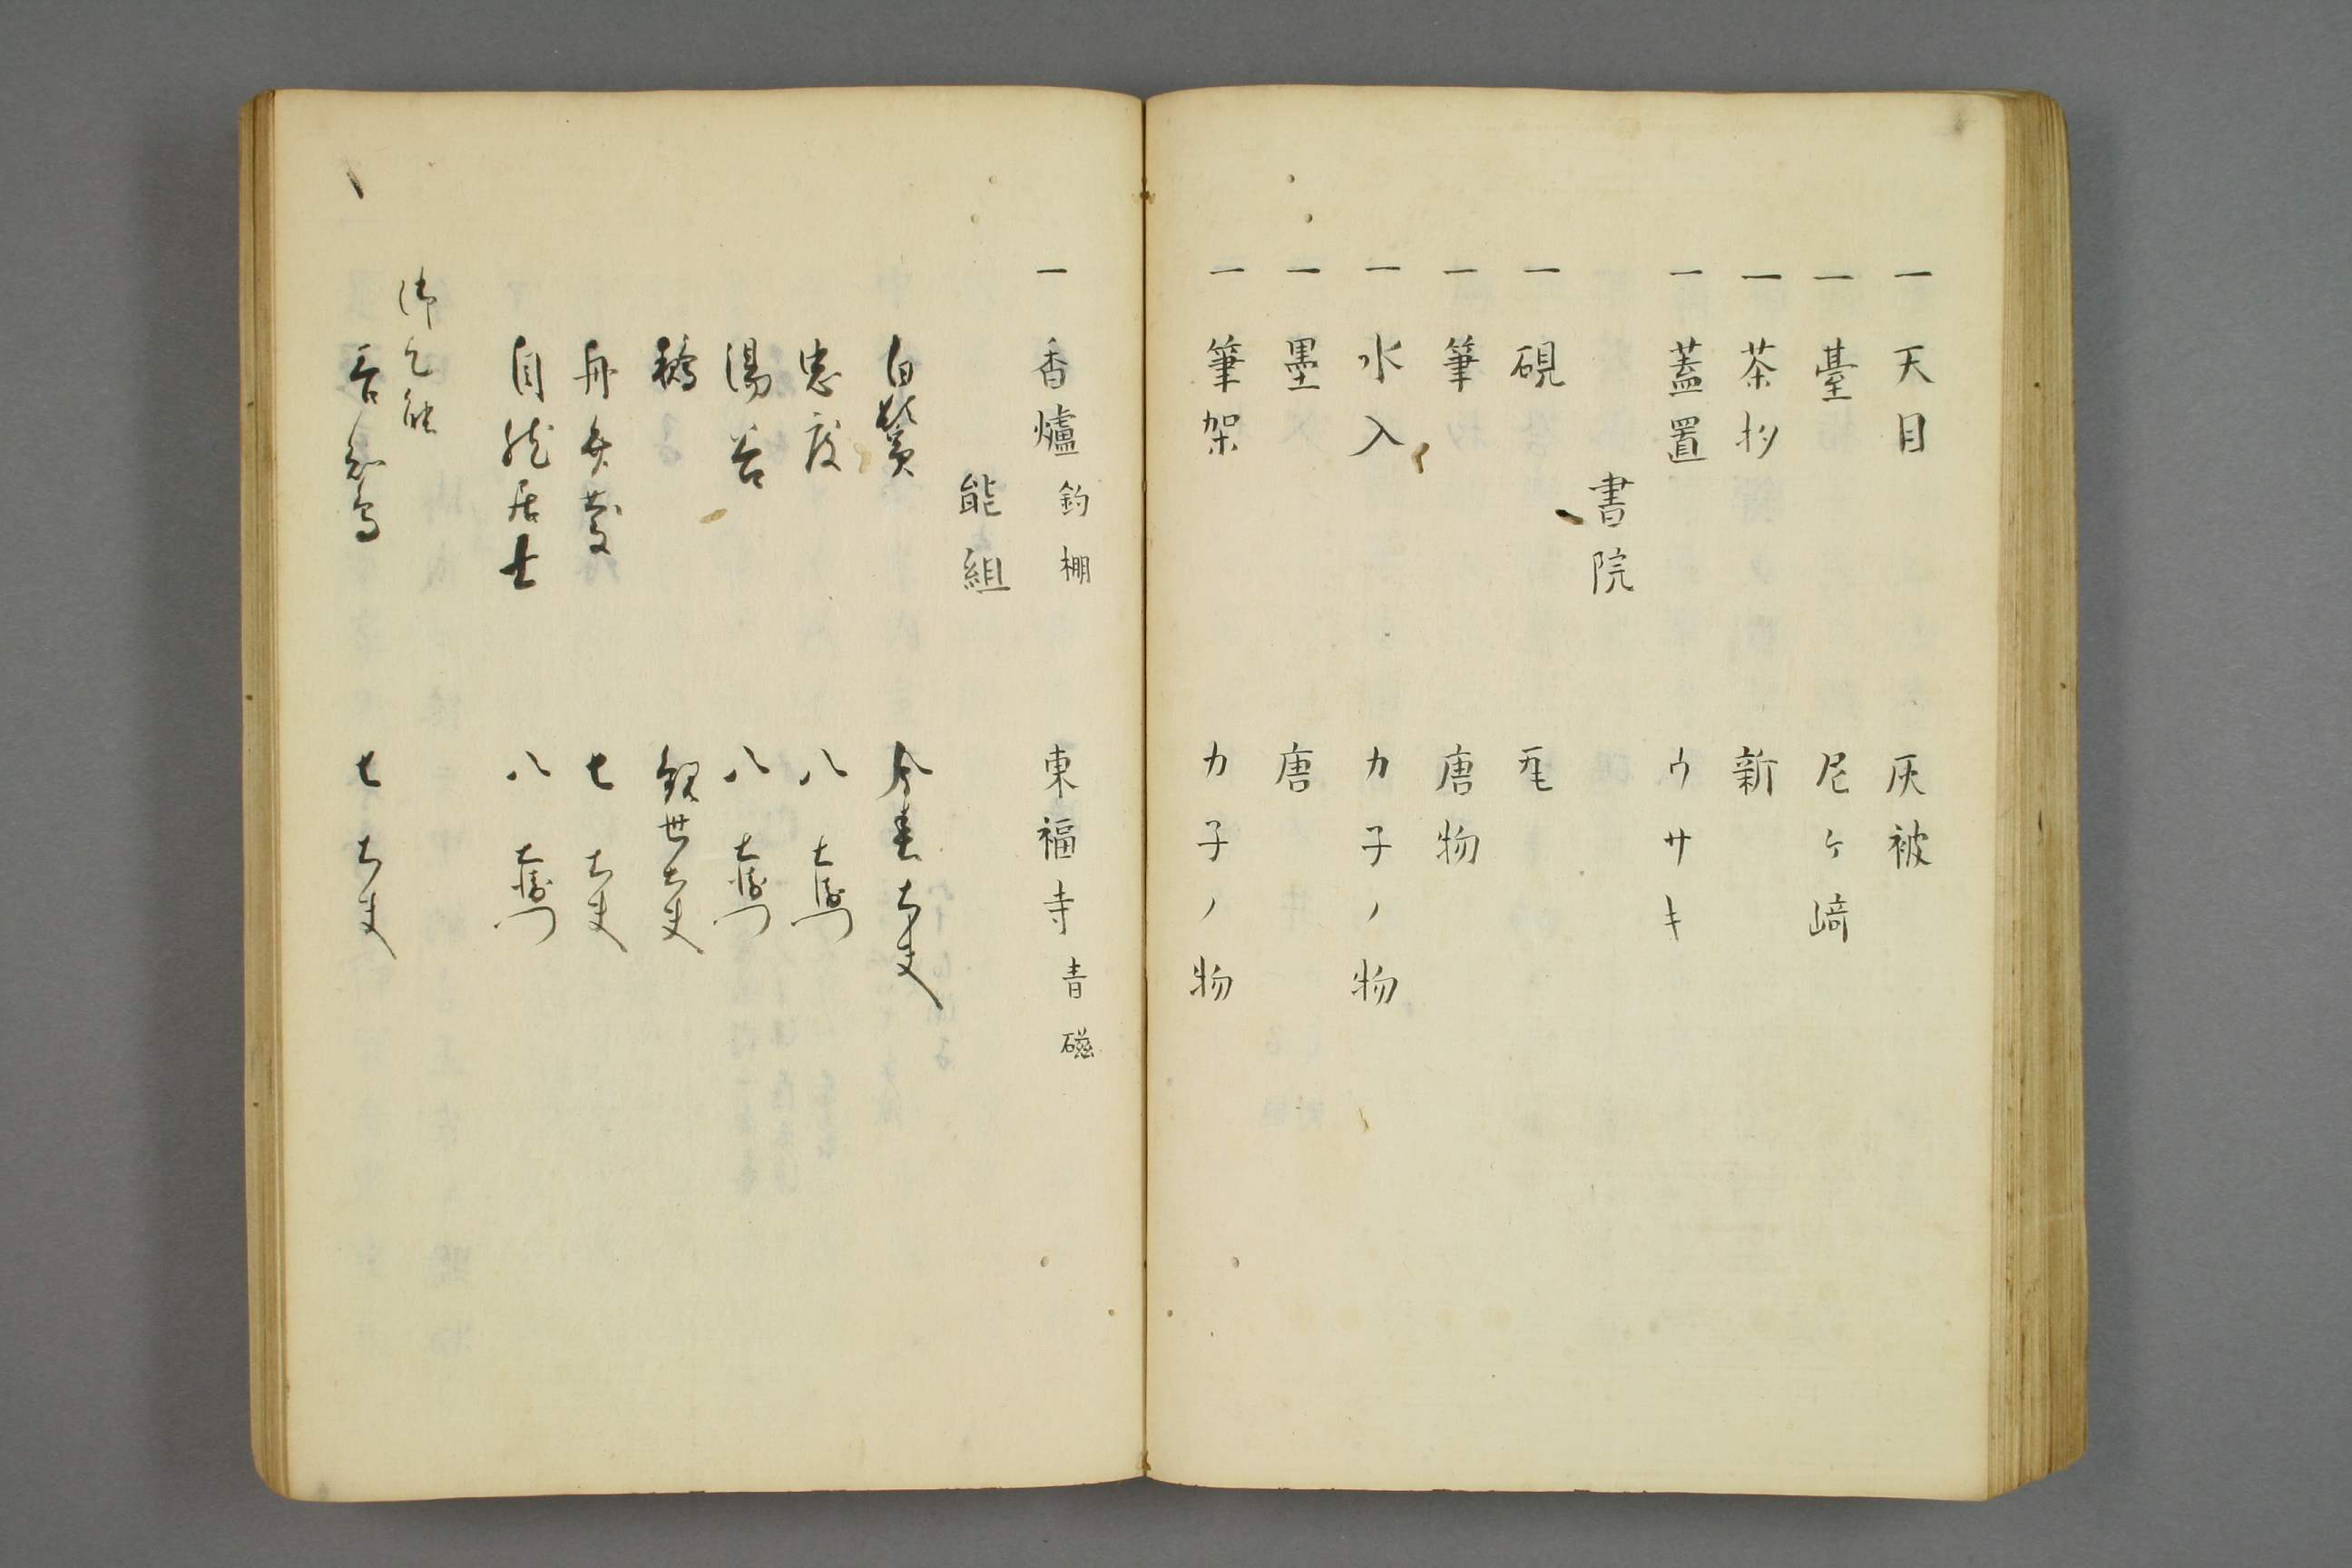 一天目 灰被
一臺 尼ヶ﨑
一茶杓 新
一蓋置 ウサキ
書院
一硯 瓦
一筆 唐物
一水入 カ子ノ物
一墨 唐
一筆架 カ子ノ物
一香爐 釣棚 東福寺青磁
能組
白鬚 今春大夫
忠度 八左衛門
湯谷 八左衛門
鵺 観世大夫
舟弁慶 七大夫
自然居士 八左衛門
御乞能
善知鳥 七大夫